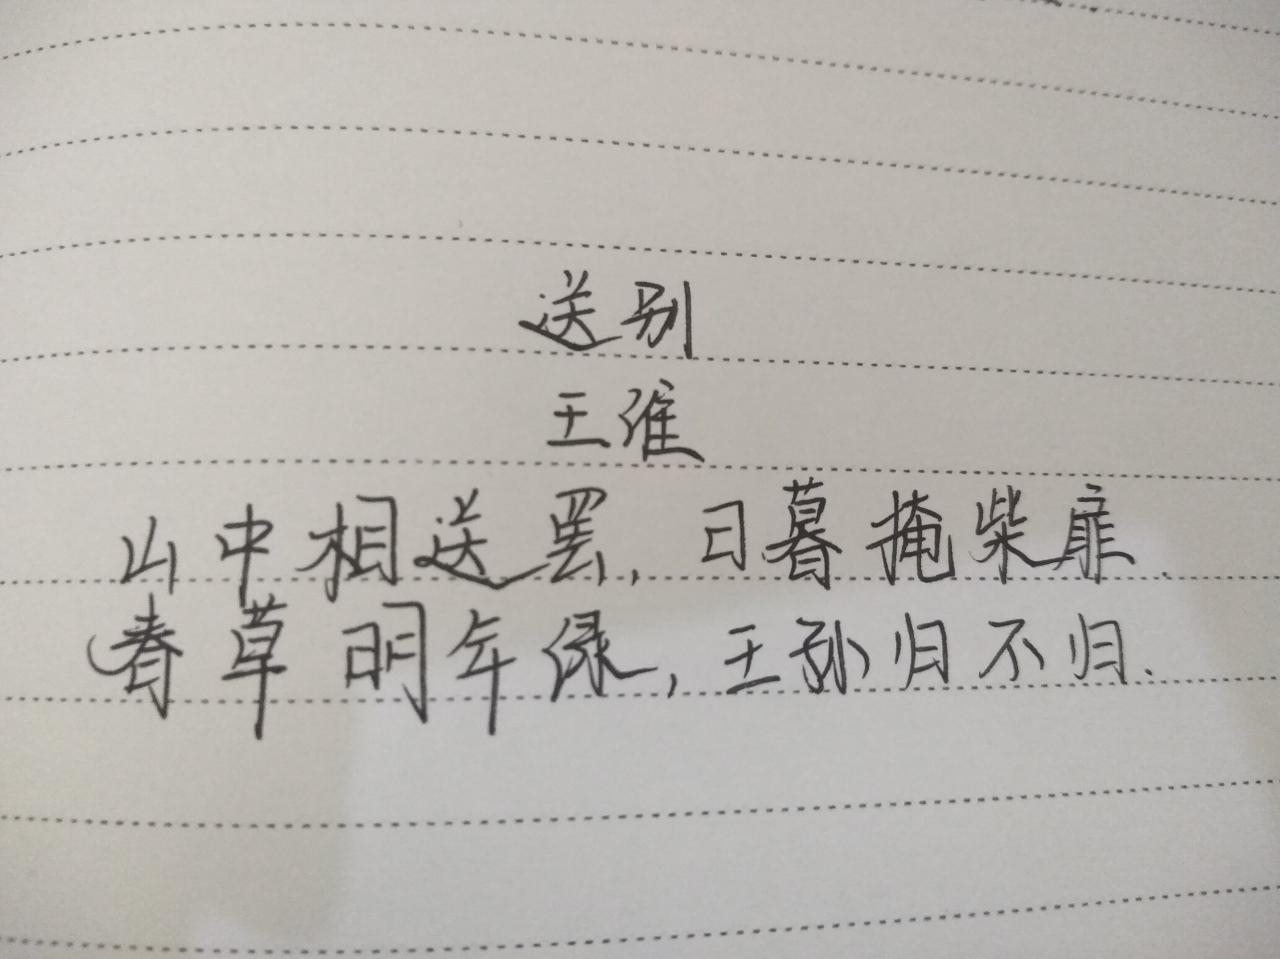 送别
王维
山中相送罢,日暮掩柴扉.
春草明年绿,王孙归不归.